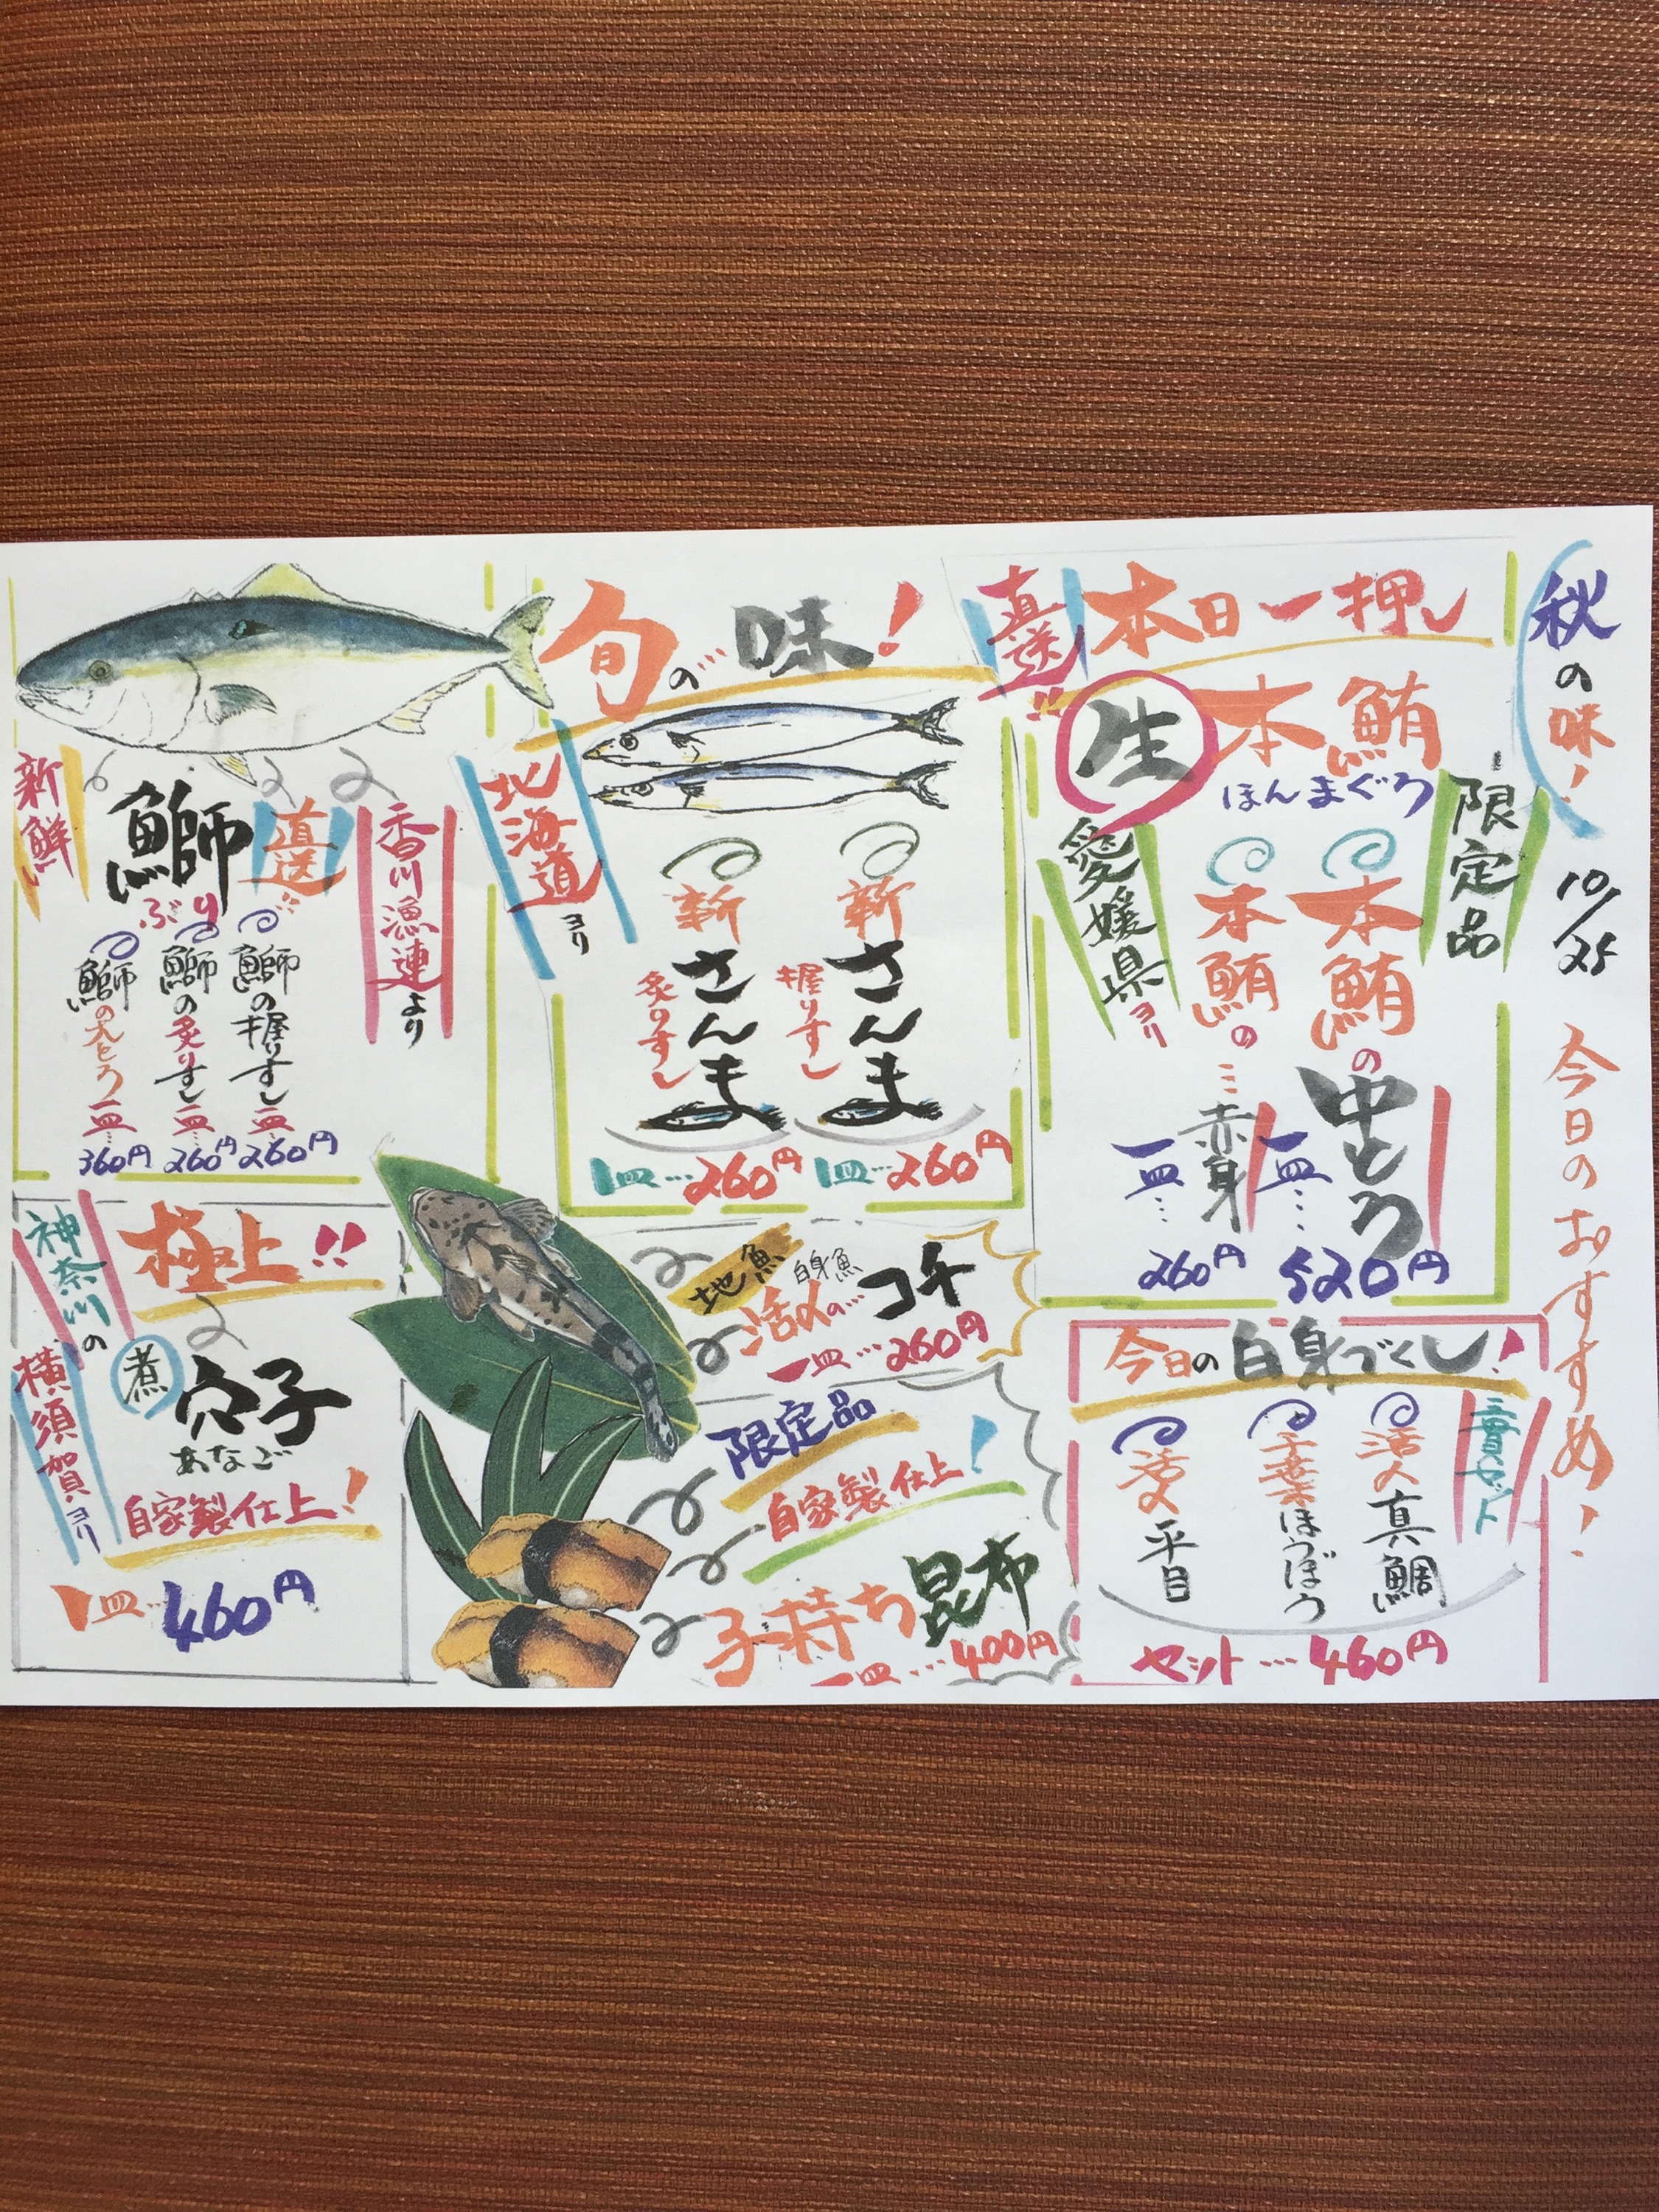 秋の味!
10/25
今日のおすすめ!
直送!!
本日一押し
生本鮪
ほんまぐろ
限定品
愛媛県ヨリ
本鮪の中とろ
一皿…520円
本鮪の…赤身
一皿…260円
旬の…味!
北海道ヨリ
新さんま
握りすし
1皿…260円
新さんま
炙りすし
1皿…260円
新鮮
鰤
ぶり
直送!!
香川漁連より
鰤の握りすし
一皿…260円
鰤の炙りすし
一皿…260円
鰤の大とろ
一皿…360円
今日の白身づくし!
三貫セット
活〆真鯛
千葉ほうぼう
活〆平目
セット…460円
地魚
白身魚
活〆の…コチ
一皿…260円
限定品
自家製仕上!
子持ち昆布
一皿…400円
極上!!
神奈川の
横須賀ヨリ
煮穴子
あなご
自家製仕上!
1皿…460円